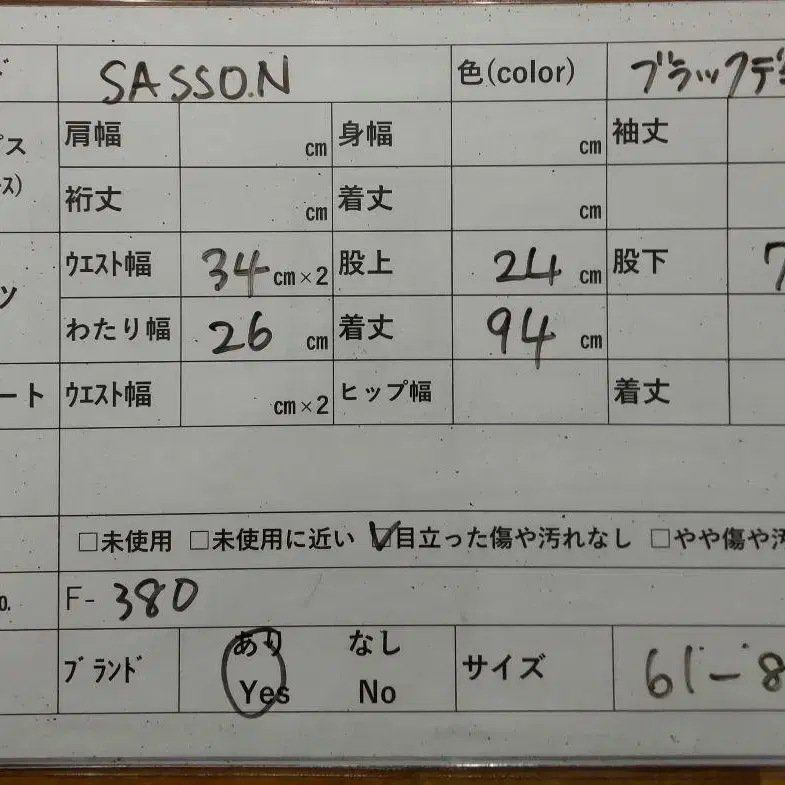 SASSON 色(color) ブラックデ
肩幅 cm 身幅 cm 袖丈
裄丈 cm 着丈 cm
ｳｴｽﾄ幅 34 cm×2 股上 24 cm 股下 7
わたり幅 26 cm 着丈 94 cm
ート ｳｴｽﾄ幅 cm×2 ヒップ幅 着丈
□未使用 □未使用に近い ☑目立った傷や汚れなし □やや傷や汚
F- 380
ﾌﾞﾗﾝﾄﾞ あり なし サイズ 61-8
Yes No